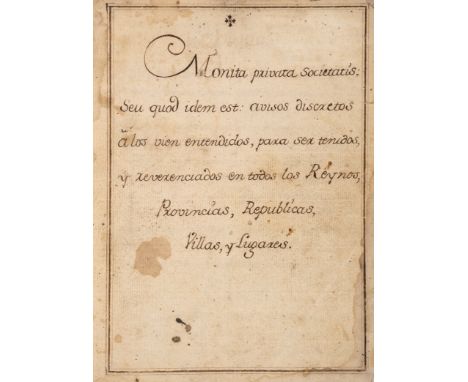 Monita privata Societatis:
Seu quod idem est: avisos discretos
â los vien entendidos, para ser tenidos,
y reverenciados en todos los Reynos,
Provincias, Republicas,
Villas, y Lugares.